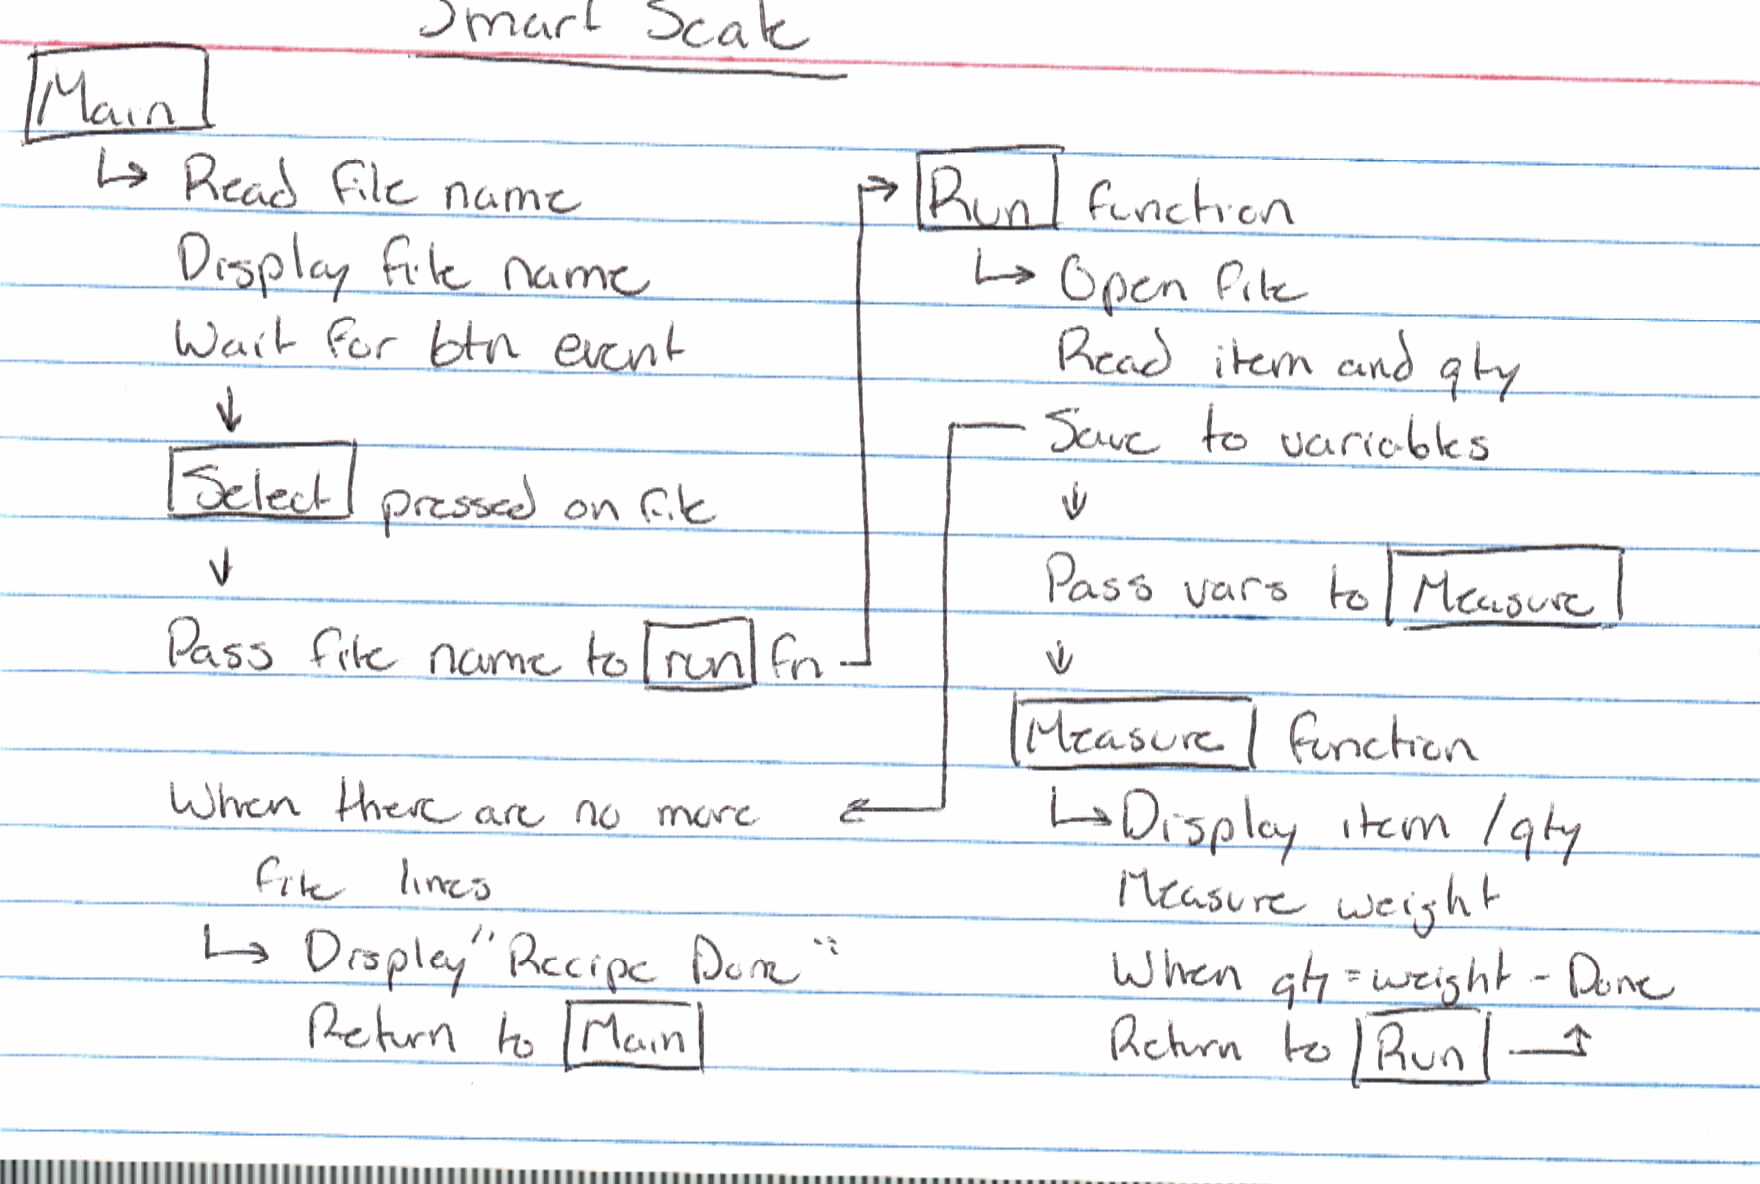 Smart Scale
Main
↳ Read file name
Display file name
Wait for btn event
↓
Select pressed on file
↓
Pass file name to run fn
When there are no more
file lines
↳ Display "Recipe Done"
Return to Main
→ Run function
↳ Open file
Read item and qty
Save to variables
↓
Pass vars to Measure
↓
Measure function
↳ Display item / qty
Measure weight
When qty = weight - Done
Return to Run